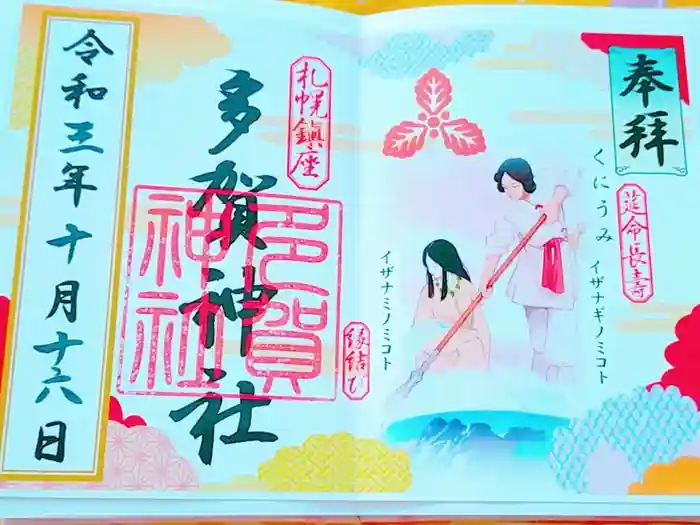 奉拝
延命長壽
くにうみ
イザナギノミコト
イザナミノミコト
札幌鎮座
多賀神社
多賀
神社
縁結び
令和三年十月十六日